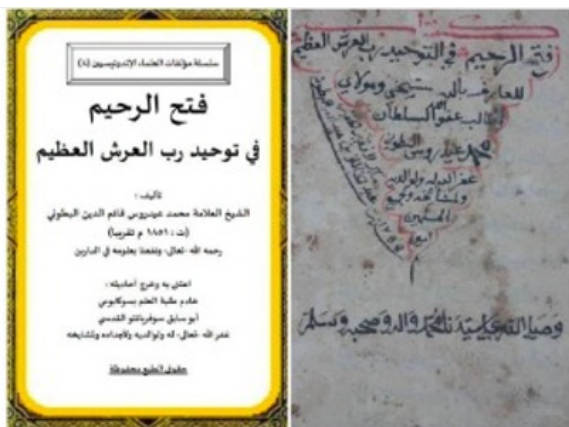 سلسلة مؤلفات العلماء الإندونيسيين (٤)
فتح الرحيم
في توحيد رب العرش العظيم
تأليف :
الشيخ العلامة محمد عيدروس قائم الدين البطوني
(ت : ١٨٥١ م تقريبا)
رحمه الله -تعالى- ونفعنا بعلومه في الدارين
اعتنى به وخرج أحاديثه :
خادم طلبة العلم بسوكابومي
أبو سابق سوفريانتو القدسي
غفر الله -تعالى- له ولوالديه ولأجداده ولمشايخه
حقوق الطبع محفوظة
فتح الرحيم في التوحيد رب العرش العظيم
للعارف بالله شيخي ومولاي
السلطان
عيدروس
غفر الله له ولوالديه
ولمشائخه وجميع
المسلمين
وصلى الله على سيدنا محمد واله وصحبه وسلم